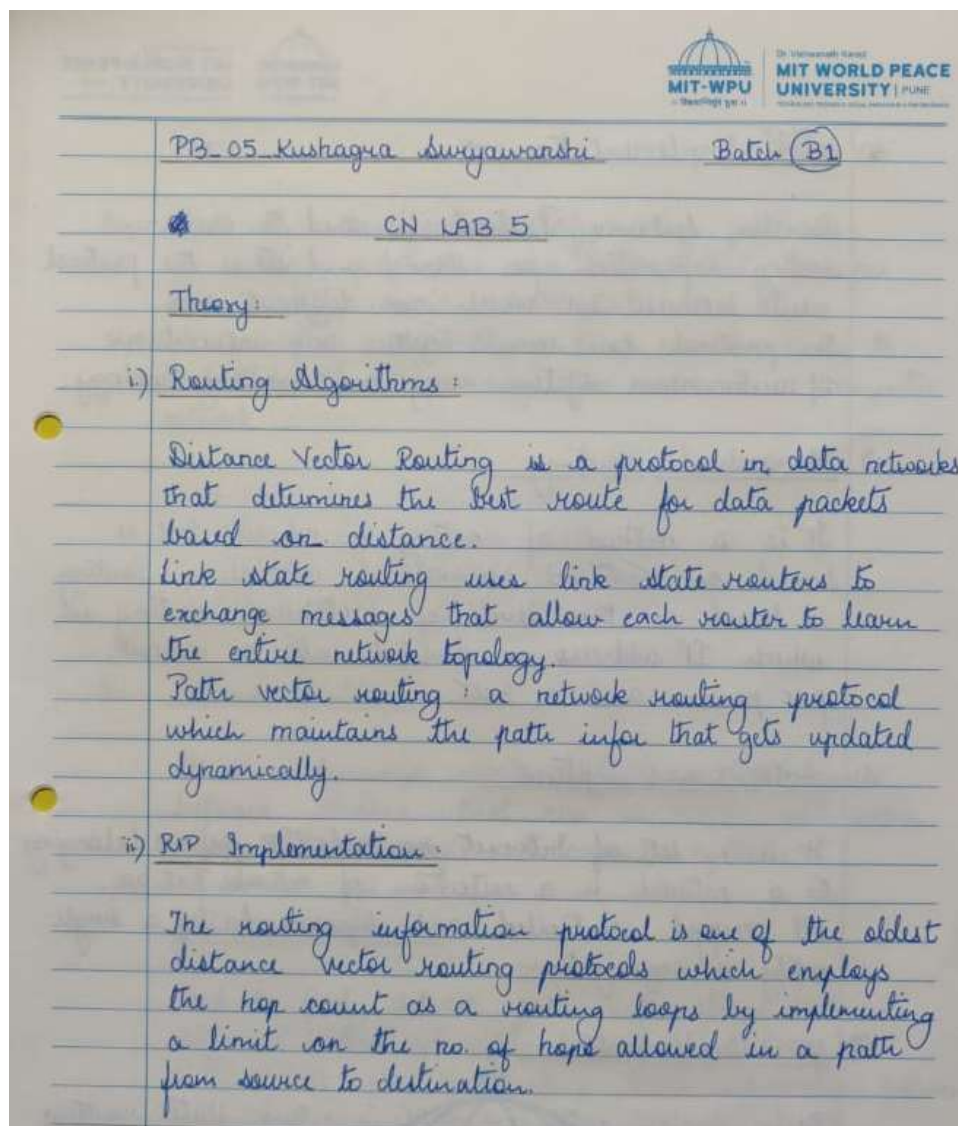 Dr. Vishwanath Karad
MIT WORLD PEACE
UNIVERSITY | PUNE
MIT-WPU
PB_05_Kushagra Suryawanshi Batch B1
CN LAB 5
Theory:
i.) Routing Algorithms :
Distance Vector Routing is a protocol in data networks
that determines the best route for data packets
based on distance.
Link state routing uses link state routers to
exchange messages that allow each router to learn
the entire network topology.
Path vector routing : a network routing protocol
which maintains the path infor that gets updated
dynamically.
ii.) RIP Implementation.
The routing information protocol is one of the oldest
distance vector routing protocols which employs
the hop count as a routing loops by implementing
a limit on the no. of hops allowed in a path
from source to destination.